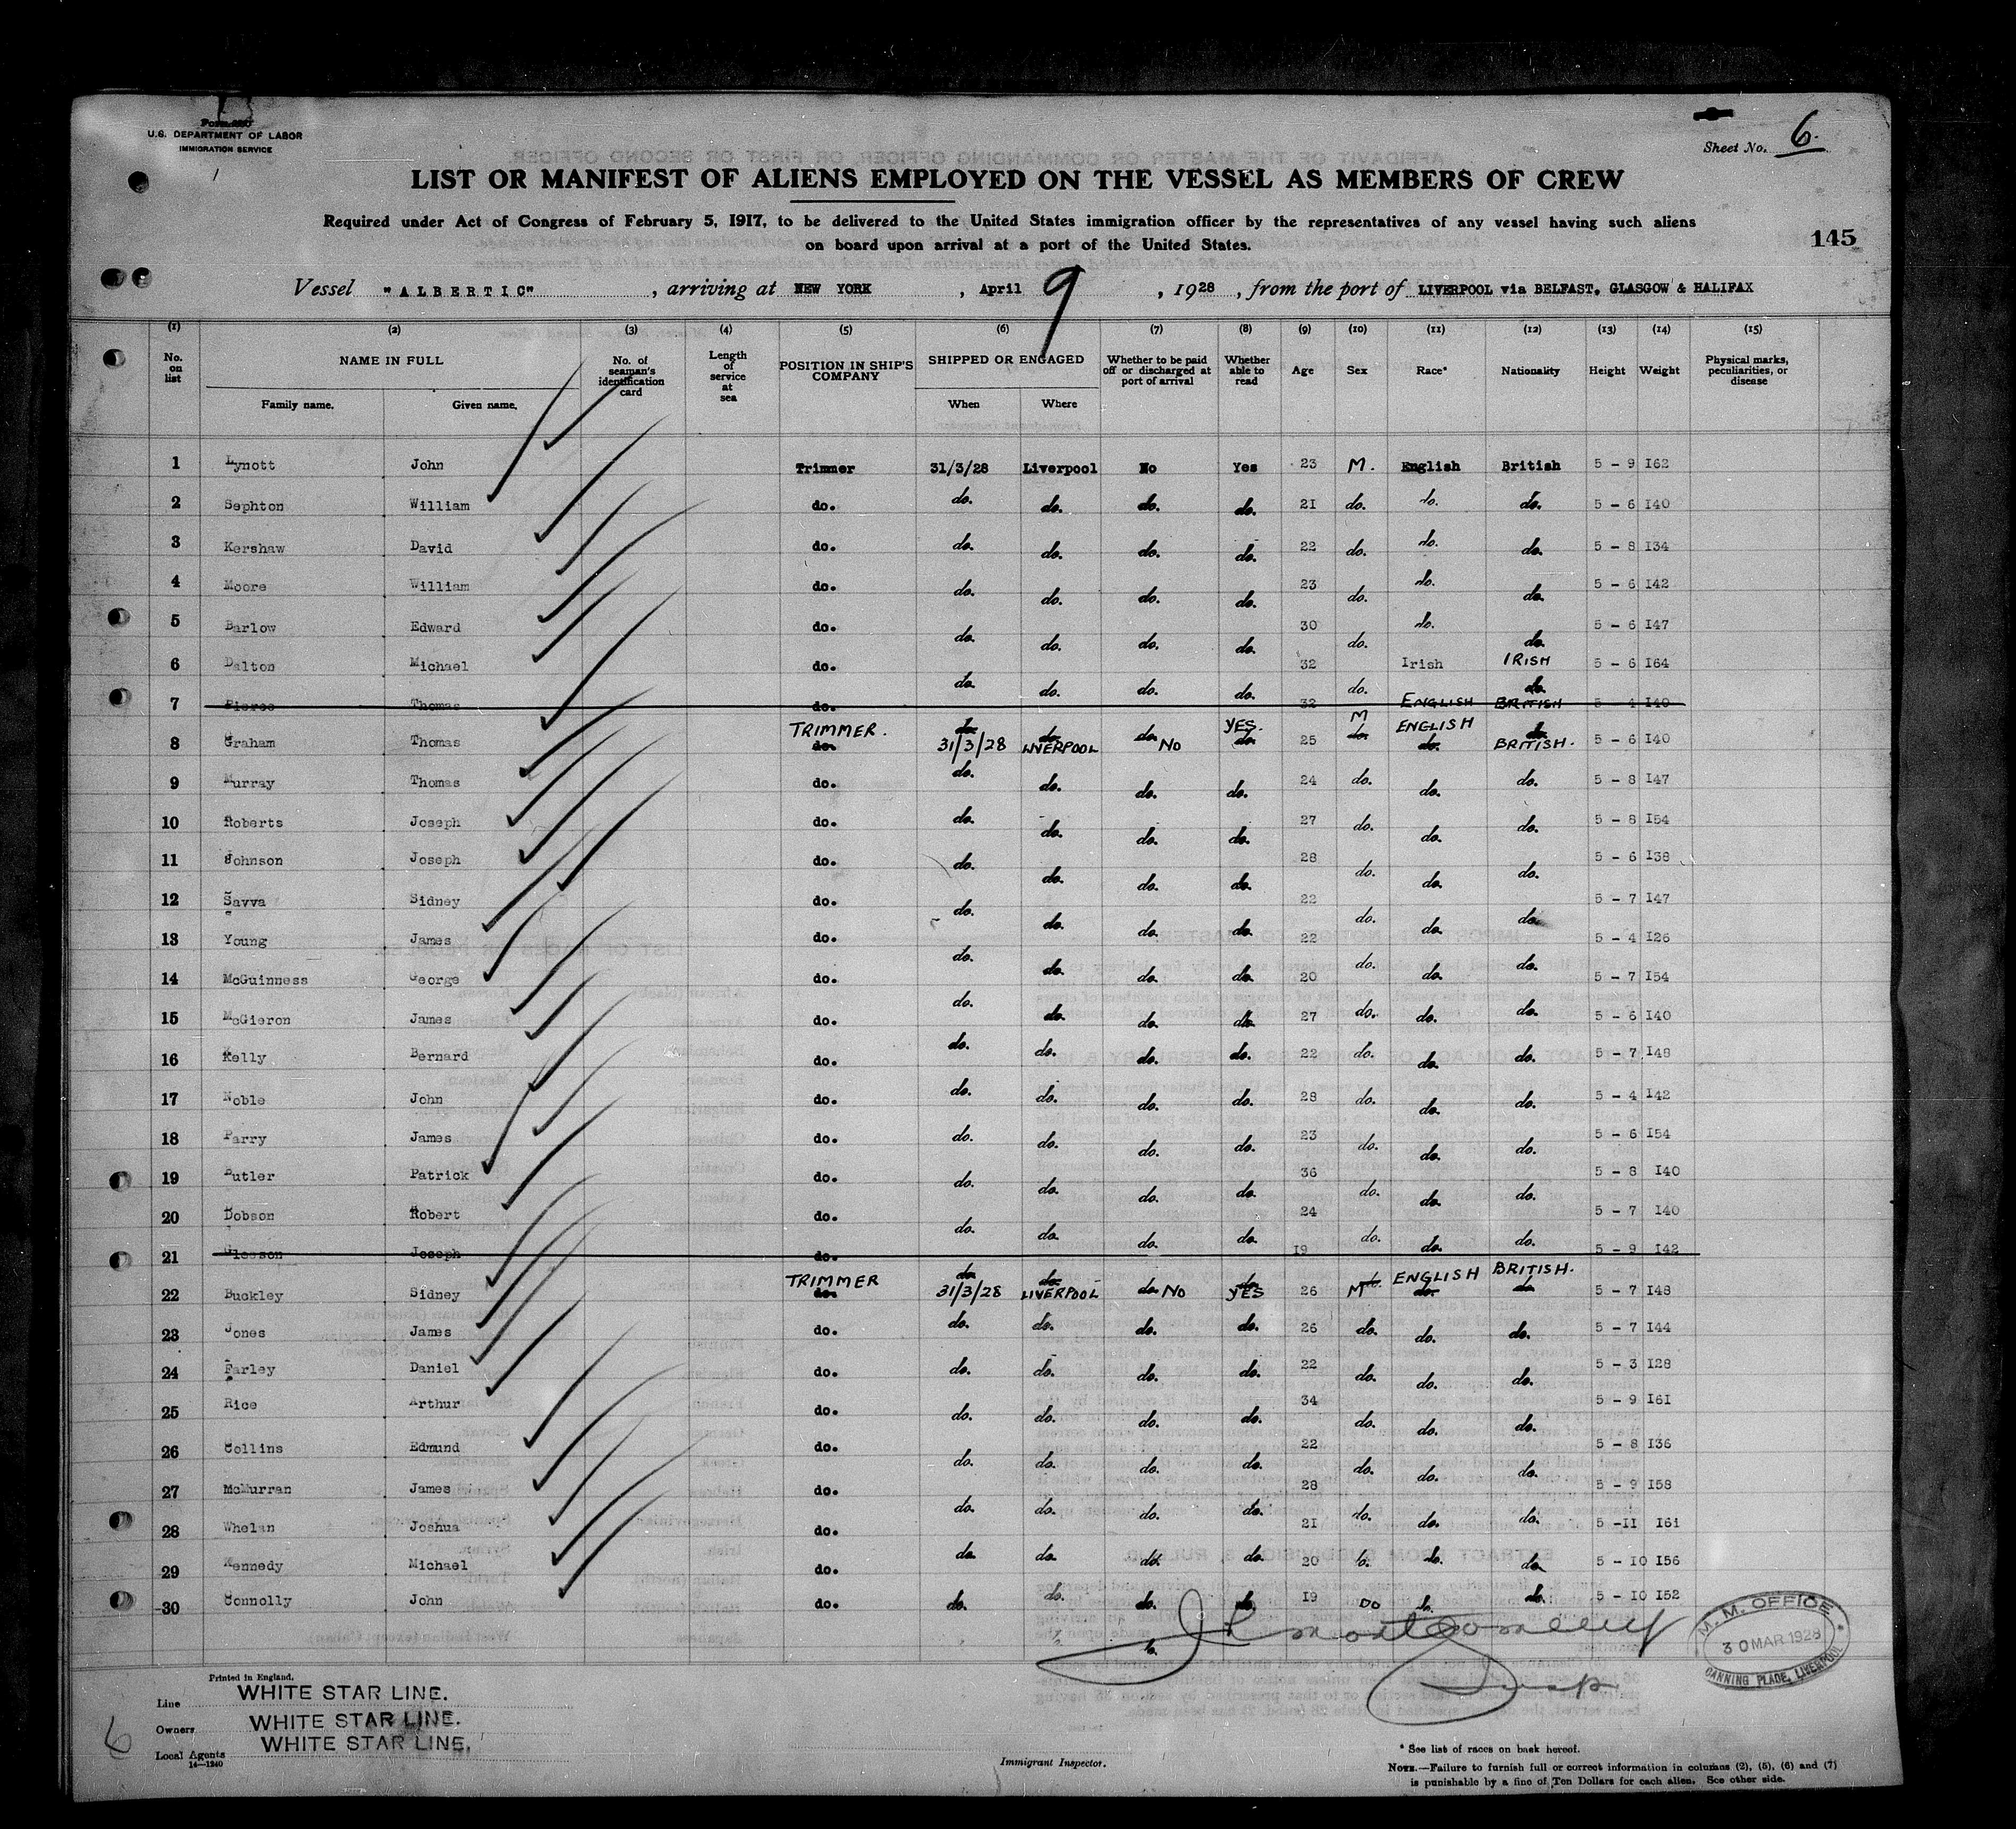 Form 680
U.S. DEPARTMENT OF LABOR
IMMIGRATION SERVICE
Sheet No. 6.
LIST OR MANIFEST OF ALIENS EMPLOYED ON THE VESSEL AS MEMBERS OF CREW
Required under Act of Congress of February 5, 1917, to be delivered to the United States immigration officer by the representatives of any vessel having such aliens
on board upon arrival at a port of the United States.
145
Vessel "ALBERTIC", arriving at NEW YORK, April 9, 1928, from the port of LIVERPOOL via BELFAST, GLASGOW & HALIFAX
(1) (2) (3) (4) (5) (6) (7) (8) (9) (10) (11) (12) (13) (14) (15)
No. on list NAME IN FULL No. of seaman's identification card Length of service at sea POSITION IN SHIP'S COMPANY SHIPPED OR ENGAGED Whether to be paid off or discharged at port of arrival Whether able to read Age Sex Race* Nationality Height Weight Physical marks, peculiarities, or disease
Family name. Given name. When Where
1 Lynott John Trimmer 31/3/28 Liverpool No Yes 23 M. English British 5 - 9 162
2 Sephton William do. do. do. do. do. 21 do. do. do. 5 - 6 140
3 Kershaw David do. do. do. do. do. 22 do. do. do. 5 - 8 134
4 Moore William do. do. do. do. do. 23 do. do. do. 5 - 6 142
5 Barlow Edward do. do. do. do. do. 30 do. do. do. 5 - 6 147
6 Dalton Michael do. do. do. do. do. 32 do. Irish IRISH 5 - 6 164
7 Pierce Thomas do. 32 ENGLISH do. BRITISH 5 - 4 140
8 Graham Thomas TRIMMER. do. do. 31/3/28 do. LIVERPOOL do. No YES. do. 25 M do. ENGLISH do. do. BRITISH. 5 - 6 140
9 Murray Thomas do. do. do. do. do. 24 do. do. do. 5 - 8 147
10 Roberts Joseph do. do. do. do. do. 27 do. do. do. 5 - 8 154
11 Johnson Joseph do. do. do. do. do. 28 do. do. do. 5 - 6 138
12 Savva Sidney do. do. do. do. do. 22 do. do. do. 5 - 7 147
13 Young James do. do. do. do. do. 22 do. do. do. 5 - 4 126
14 McGuinness George do. do. do. do. do. 20 do. do. do. 5 - 7 154
15 McGieron James do. do. do. do. do. 27 do. do. do. 5 - 6 140
16 Kelly Bernard do. do. do. do. do. 22 do. do. do. 5 - 7 148
17 Noble John do. do. do. do. do. 28 do. do. do. 5 - 4 142
18 Parry James do. do. do. do. do. 23 do. do. do. 5 - 6 154
19 Butler Patrick do. do. do. do. do. 36 do. do. do. 5 - 8 140
20 Dobson Robert do. do. do. do. do. 24 do. do. do. 5 - 7 140
21 Gleeson Joseph do. 19 do. 5 - 9 142
22 Buckley Sidney TRIMMER do. do. 31/3/28 do. LIVERPOOL do. No do. YES 26 M do. ENGLISH do. BRITISH. do. 5 - 7 148
23 Jones James do. do. do. do. do. 26 do. do. do. 5 - 7 144
24 Farley Daniel do. do. do. do. do. 22 do. do. do. 5 - 3 128
25 Rice Arthur do. do. do. do. do. 34 do. do. do. 5 - 9 161
26 Collins Edmund do. do. do. do. do. 22 do. do. do. 5 - 8 136
27 McMurran James do. do. do. do. do. 28 do. do. do. 5 - 9 158
28 Whelan Joshua do. do. do. do. do. 21 do. do. do. 5 -11 161
29 Kennedy Michael do. do. do. do. do. 20 do. do. do. 5 - 10 156
30 Connolly John do. do. do. do. do. 19 DO do. do. 5 - 10 152
M. M. OFFICE
30 MAR 1928
CANNING PLACE, LIVERPOOL
Printed in England.
Line WHITE STAR LINE.
Owners WHITE STAR LINE.
Local Agents WHITE STAR LINE.
14—1240
6
Immigrant Inspector.
* See list of races on back hereof.
NOTE.—Failure to furnish full or correct information in columns (2), (5), (6) and (7)
is punishable by a fine of Ten Dollars for each alien. See other side.